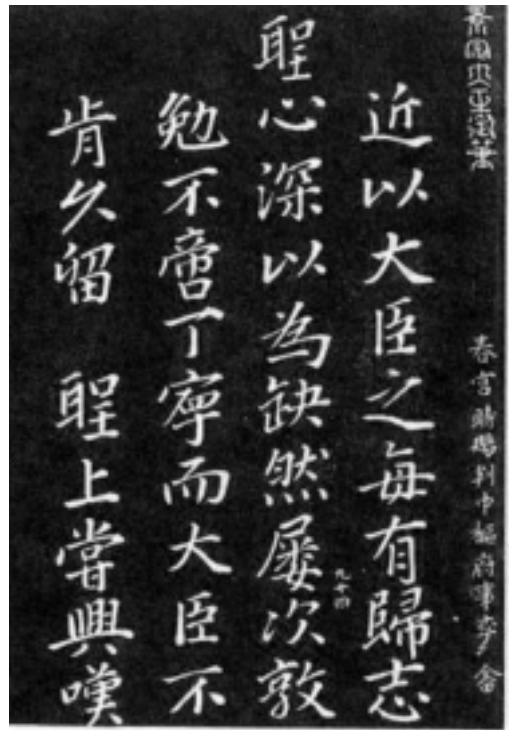 春宮賜 判中樞府事李畬
近以大臣之每有歸志
九十四
聖心深以為缺然屢次敦
勉不啻丁寧而大臣不
肯久留　聖上嘗興嘆